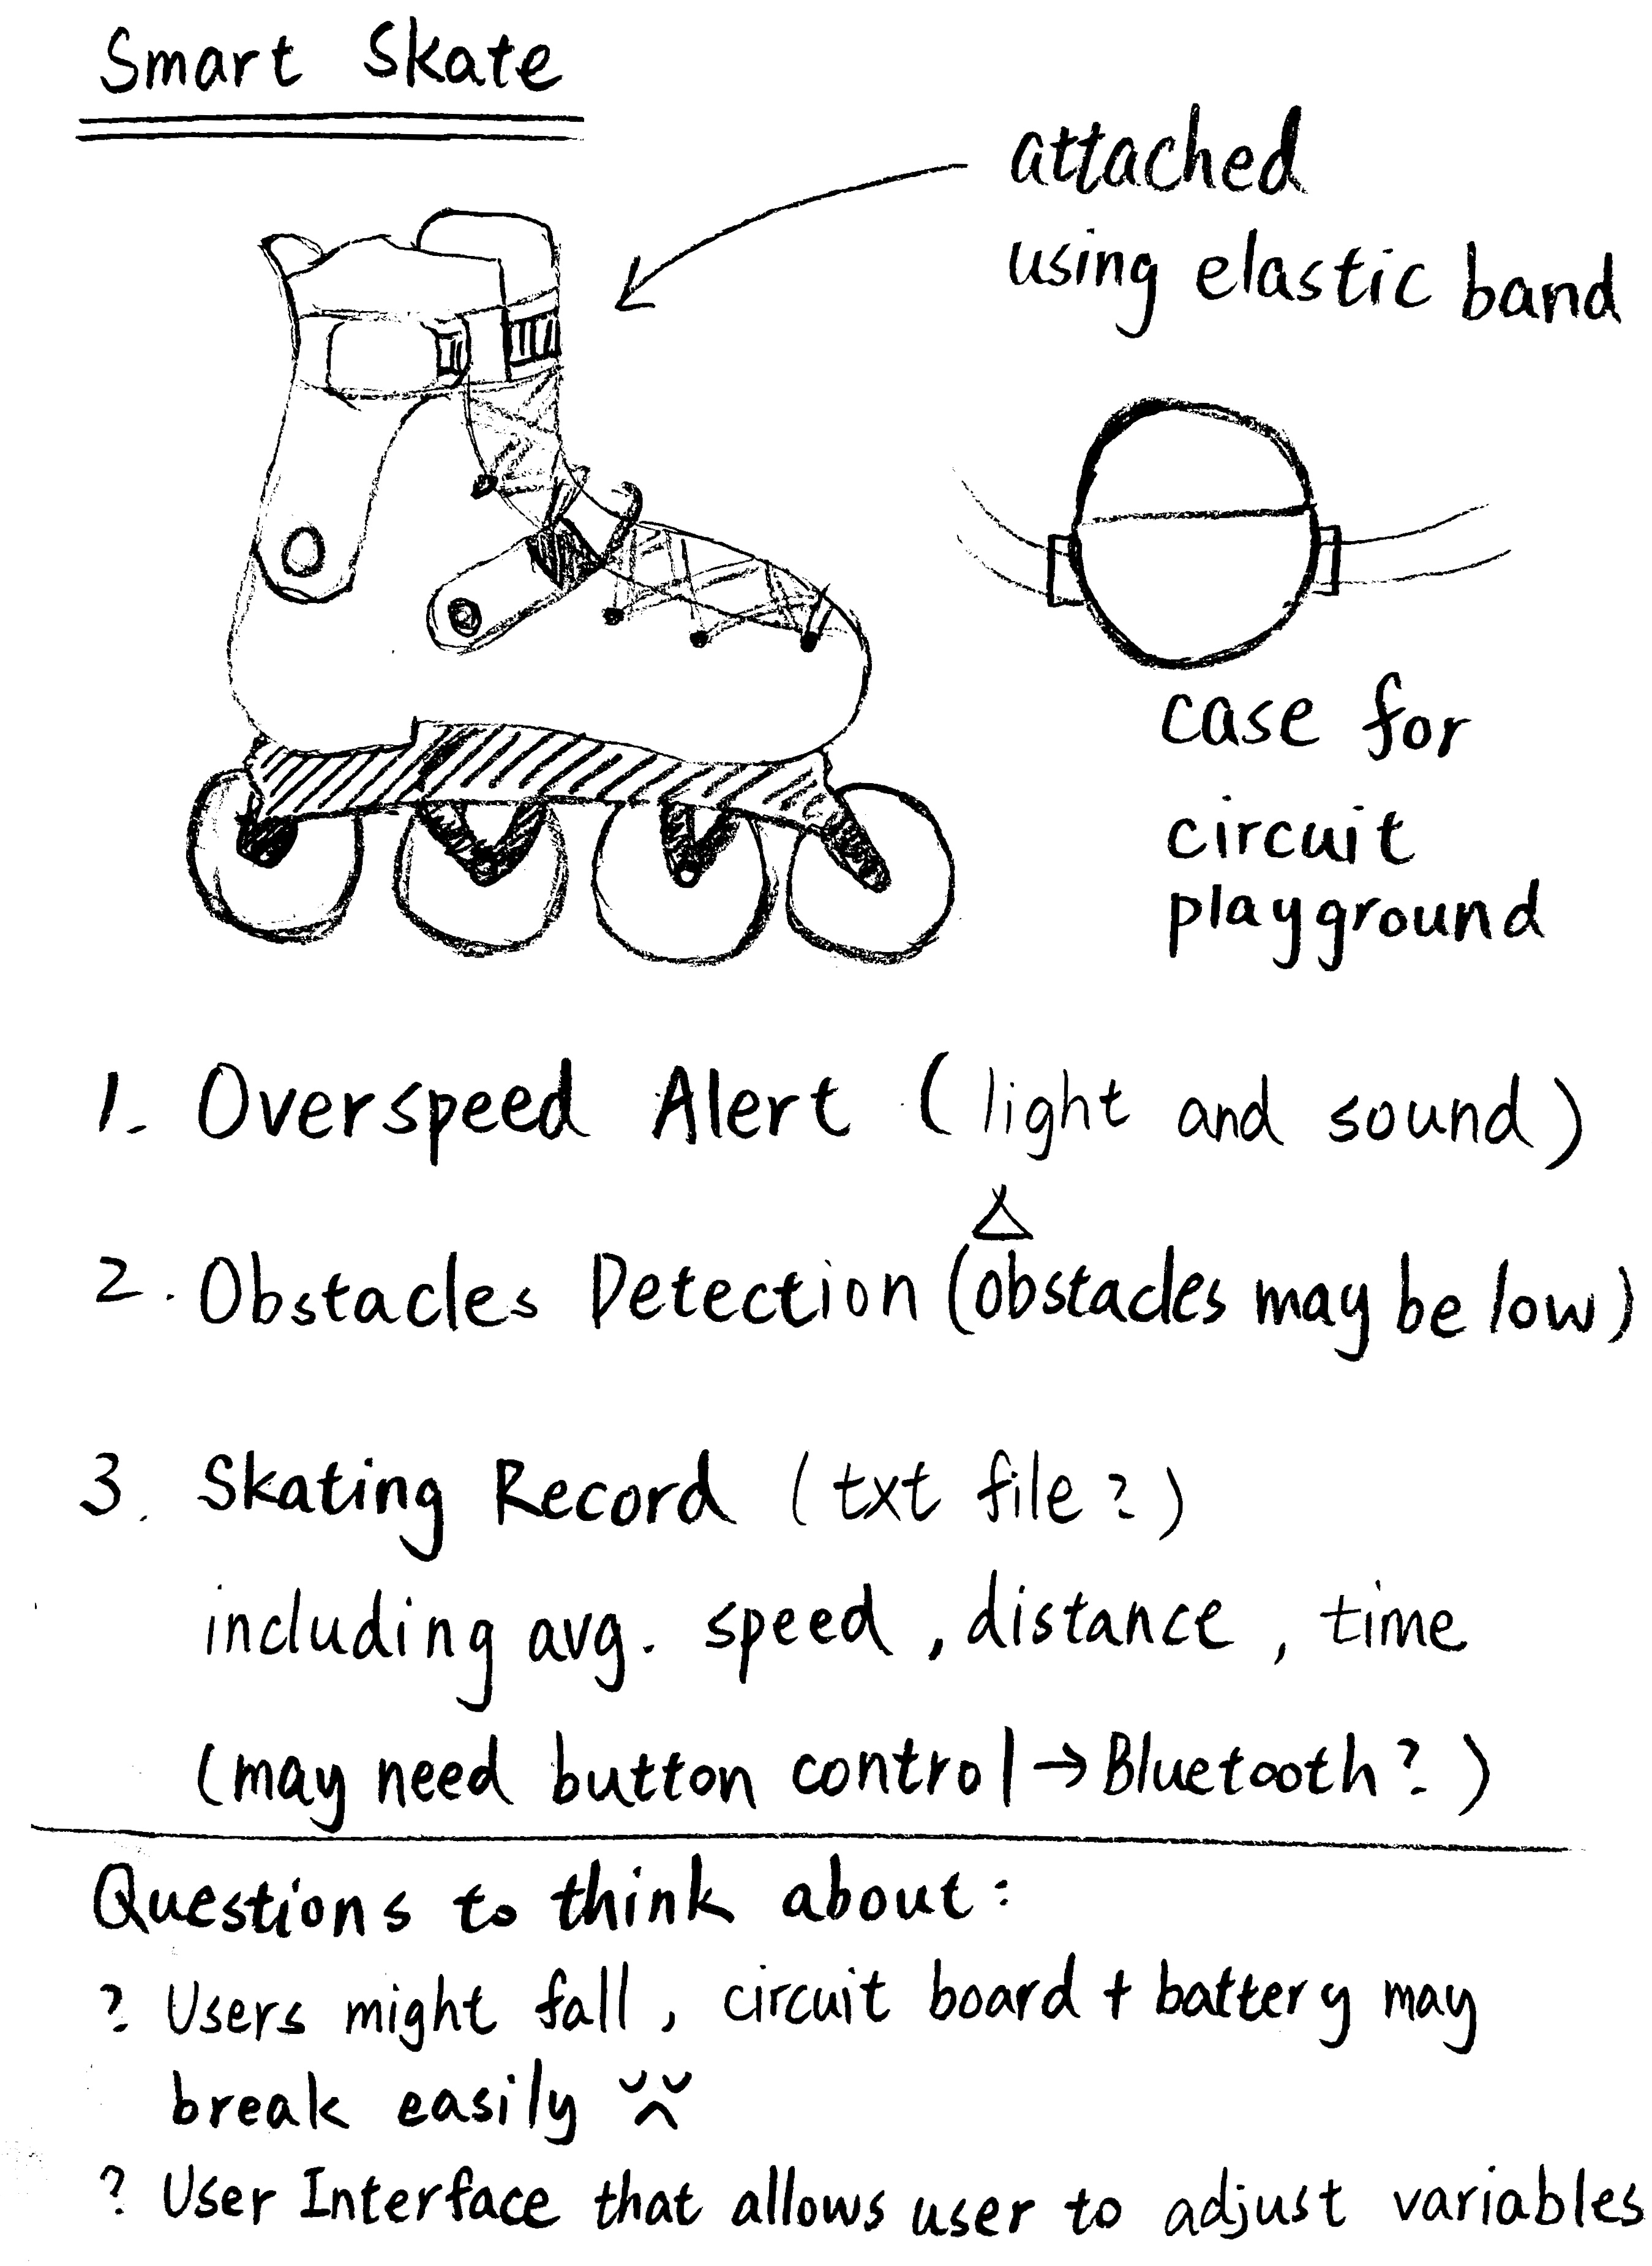 Smart Skate
attached
using elastic band
case for
circuit
playground
1. Overspeed Alert (light and sound)
2. Obstacles Detection (obstacles may be low)
3. Skating Record (txt file?)
including avg. speed, distance, time
(may need button control → Bluetooth?)
Questions to think about:
? Users might fall, circuit board + battery may
break easily
? User Interface that allows user to adjust variables